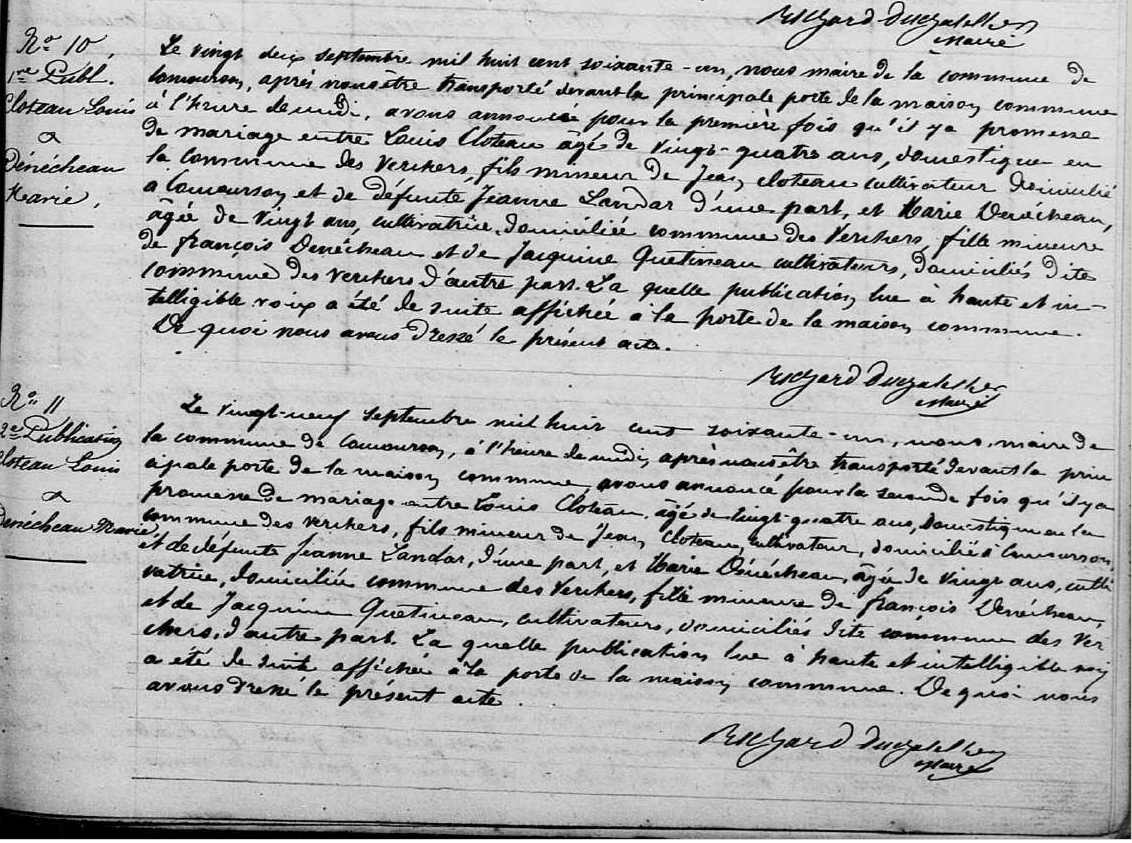 Maire
No 10.
1re Publ.
Cloteau Louis
&
Dénécheau
Marie.
Le vingt deux septembre mil huit cent soixante-un, nous maire de la commune de
Concourson, après nous être transporté devant la principale porte de la maison commune
à l'heure de midi, avons annoncé pour la première fois qu'il y a promesse
de mariage entre Louis Cloteau âgé de vingt-quatre ans, domestique en
la commune des Verchers, fils mineur de Jean Cloteau cultivateur domicilié
à Concourson et de défunte Jeanne Landar d'une part, et Marie Denécheau,
âgée de vingt ans, cultivatrice, domiciliée commune des Verchers, fille mineure
de françois Denécheau et de Jacquine Quetineau cultivateurs, domiciliés dite
commune des Verchers d'autre part. La quelle publication lue à haute et in-
telligible voix a été de suite affichée à la porte de la maison commune.
De quoi nous avons dressé le présent acte.
Maire
No 11
2e Publication
Cloteau Louis
&
Denécheau Marie
Le vingt-neuf septembre mil huit cent soixante-un, nous, maire de
la commune de Concourson, à l'heure de midi, après nous être transporté devant la prin
cipale porte de la maison commune avons annoncé pour la seconde fois qu'il y a
promesse de mariage entre Louis Cloteau, âgé de vingt-quatre ans, domestique en la
commune des Verchers, fils mineur de Jean Cloteau, cultivateur, domicilié à Concourson,
et de défunte Jeanne Landar, d'une part, et Marie Dénécheau, âgée de vingt ans, culti
vatrice, domiciliée commune des Verchers, fille mineure de françois Denécheau,
et de Jacquine Quetineau, cultivateurs, domiciliés dite commune des Ver
chers, d'autre part. La quelle publication lue à haute et intelligible voix
a été de suite affichée à la porte de la maison commune. De quoi nous
avons dressé le présent acte.
Maire